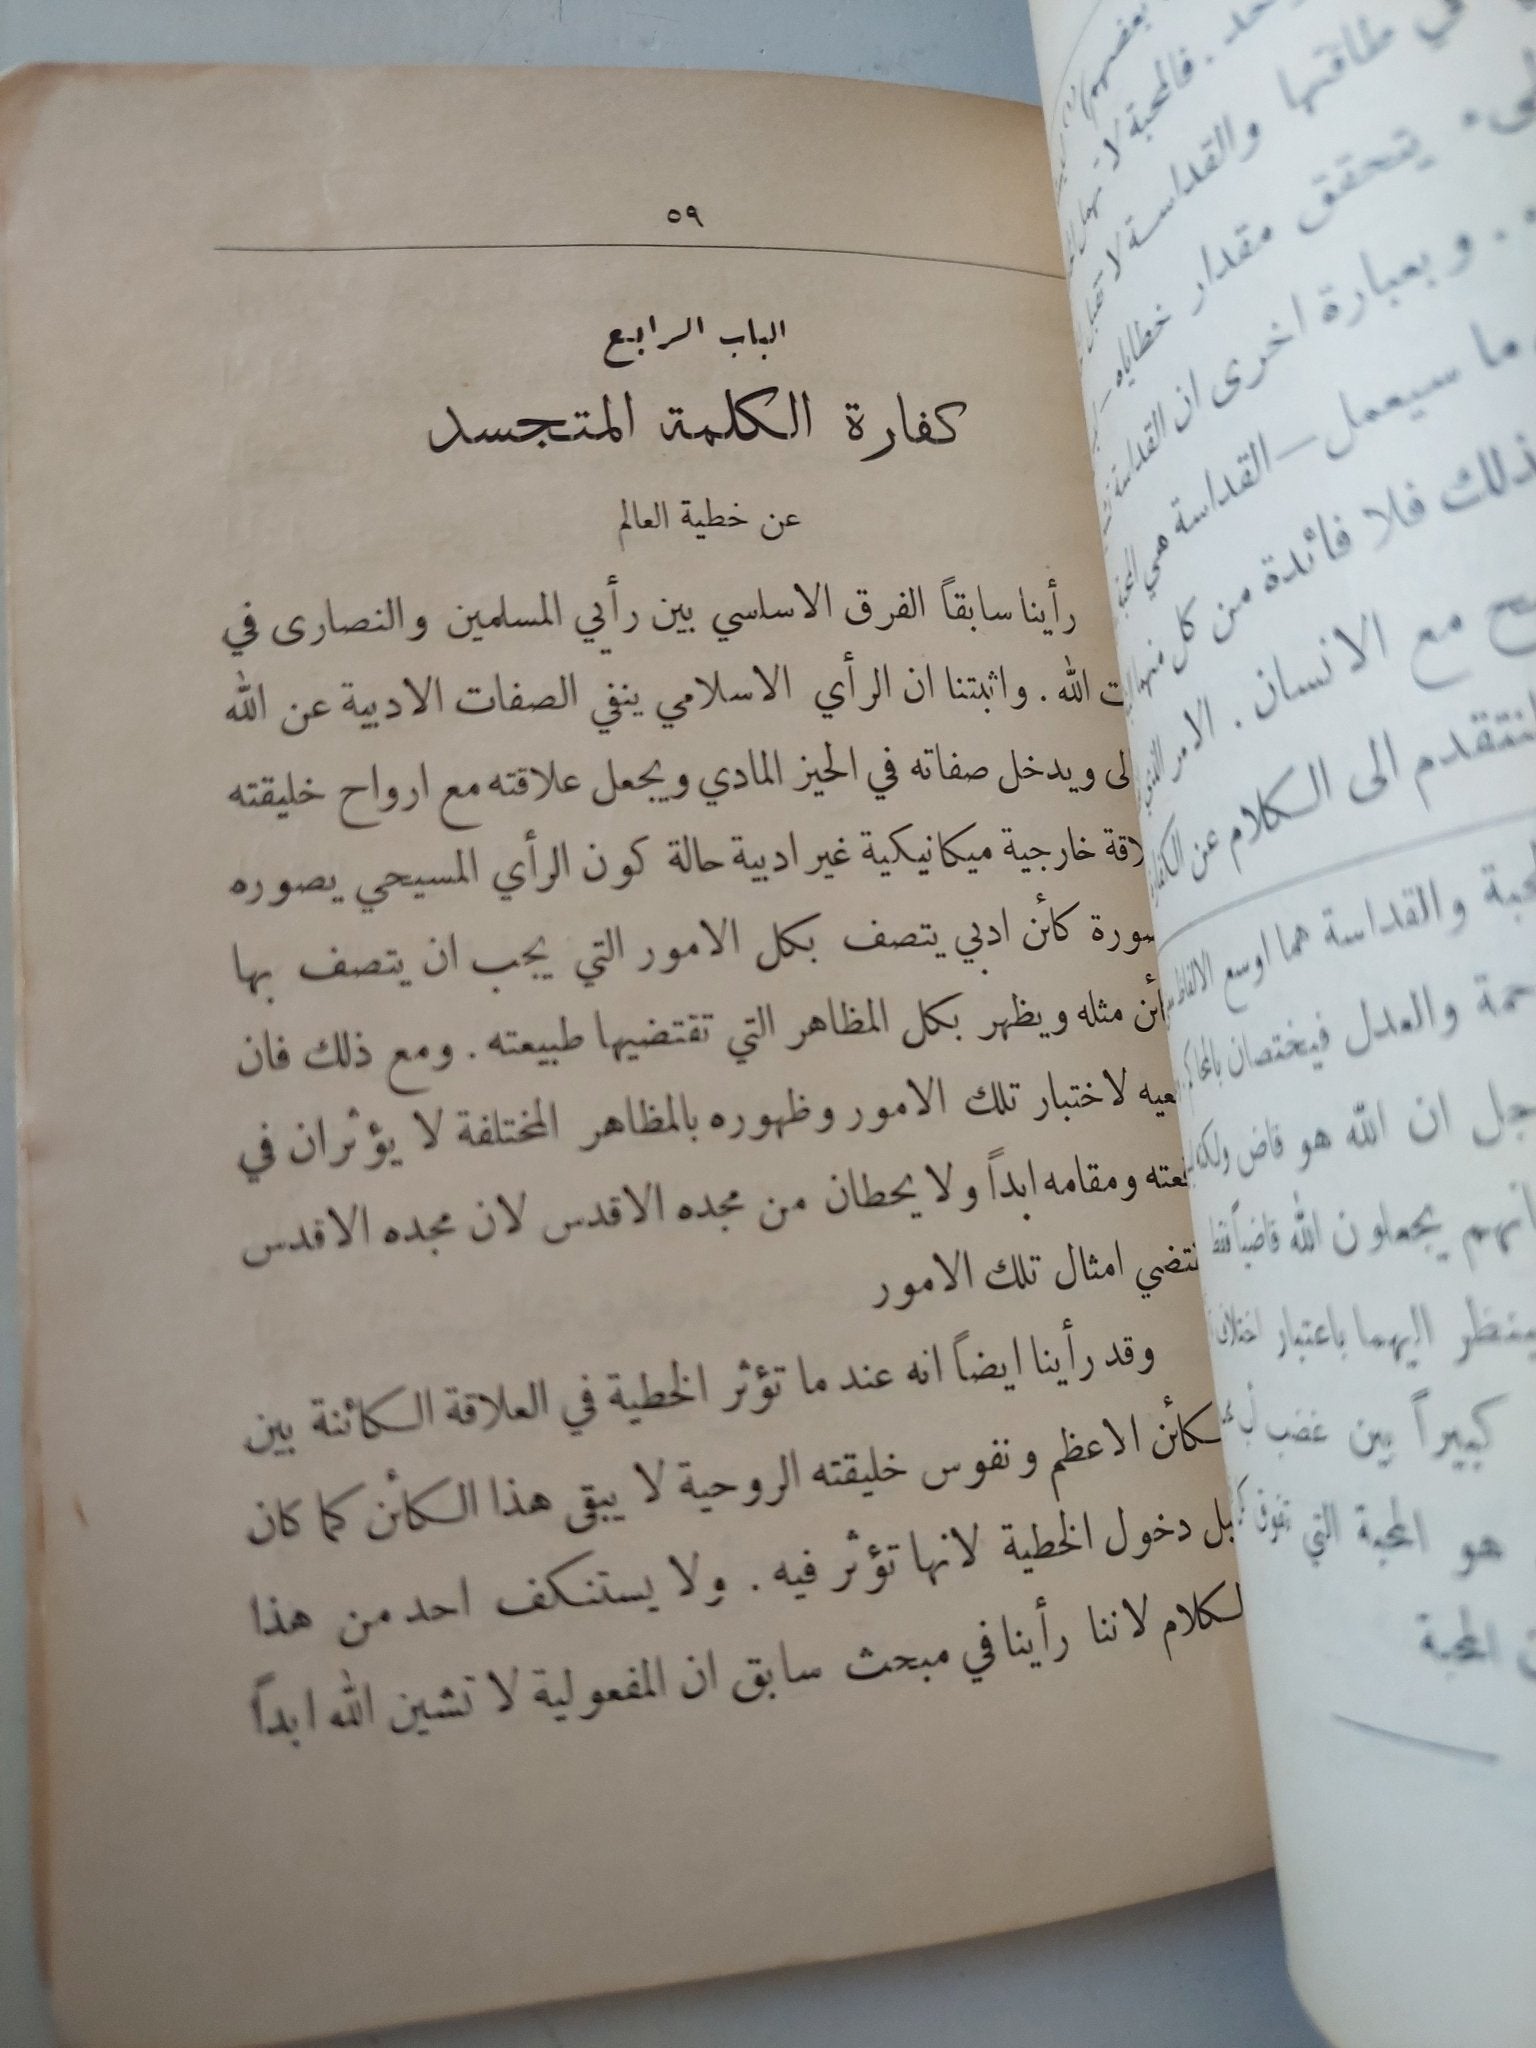 ٥٩
الباب الرابع
كفارة الكلمة المتجسد
عن خطية العالم
رأينا سابقاً الفرق الاساسي بين رأيي المسلمين والنصارى في
الله . واثبتنا ان الرأي الاسلامي ينفي الصفات الادبية عن الله
ويدخل صفاته في الحيز المادي ويجعل علاقته مع ارواح خليقته
خارجية ميكانيكية غير ادبية حالة كون الرأي المسيحي يصوره
كائن ادبي يتصف بكل الامور التي يجب ان يتصف بها
مثله ويظهر بكل المظاهر التي تقتضيها طبيعته . ومع ذلك فان
لاختبار تلك الامور وظهوره بالمظاهر المختلفة لا يؤثران في
ومقامه ابداً ولا يحطان من مجده الاقدس لان مجده الاقدس
امثال تلك الامور
وقد رأينا ايضاً انه عند ما تؤثر الخطية في العلاقة الكائنة بين
الاعظم ونفوس خليقته الروحية لا يبقى هذا الكائن كما كان
دخول الخطية لانها تؤثر فيه . ولا يستنكف احد من هذا
لاننا رأينا في مبحث سابق ان المفعولية لا تشين الله ابداً
طاقتها والقداسة لا
يتحقق مقدار خطاياه
. وبعبارة اخرى ان القداسة
ما سيعمل – القداسة هي
فلا فائدة من كل
مع الانسان . الامر
الى الكلام عن
والقداسة هما اوسع
والعدل فيختصان
ان الله هو قاض
يجعلون الله قاضياً فقط
اليهما باعتبار
كبيراً بين غضب
هو المحبة التي تفوق
المحبة